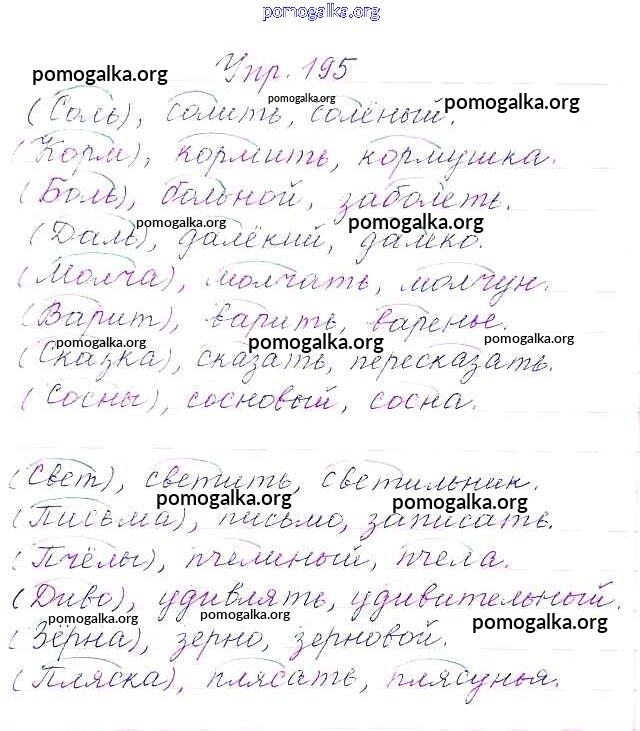 pomogalka.org
Упр. 195
pomogalka.org
pomogalka.org
pomogalka.org
(Соль), солить, солёный.
(Корм), кормить, кормушка.
(Боль), больной, заболеть.
pomogalka.org
pomogalka.org
(Даль), далёкий, далеко.
(Молча), молчать, молчун.
(Варит), варить, варенье.
pomogalka.org
pomogalka.org
pomogalka.org
(Сказка), сказать, пересказать.
(Сосны), сосновый, сосна.
(Свет), светить, светильник.
pomogalka.org
pomogalka.org
(Письма), письмо, записать.
(Пчёлы), пчелиный, пчела.
(Диво), удивлять, удивительный.
pomogalka.org
pomogalka.org
pomogalka.org
(Зёрна), зерно, зерновой.
(Пляска), плясать, плясунья.